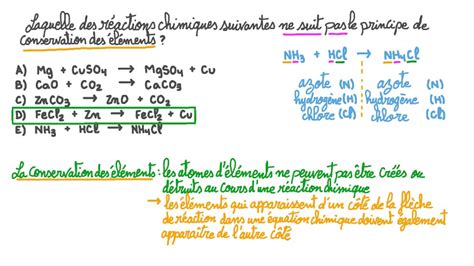 Laquelle des réactions chimiques suivantes ne suit pas le principe de
conservation des éléments ?
A) Mg + CuSO₄ → MgSO₄ + Cu
B) CaO + CO₂ → CaCO₃
C) ZnCO₃ → ZnO + CO₂
D) FeCl₂ + Zn → FeCl₂ + Cu
E) NH₃ + HCl → NH₄Cl
NH₃ + HCl → NH₄Cl
azote (N) azote (N)
hydrogène (H) hydrogène (H)
chlore (Cl) chlore (Cl)
La Conservation des éléments : les atomes d'éléments ne peuvent pas être créés ou
détruits au cours d'une réaction chimique
→ les éléments qui apparaissent d'un côté de la flèche
de réaction dans une équation chimique doivent également
apparaître de l'autre côté